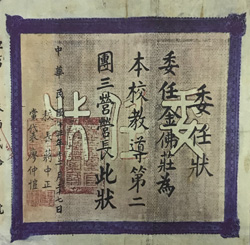 委任狀
委任金佛莊為
本校教導第二
團三營營長此狀
中華民國十年月七日
校長蔣中正
黨代表廖仲愷